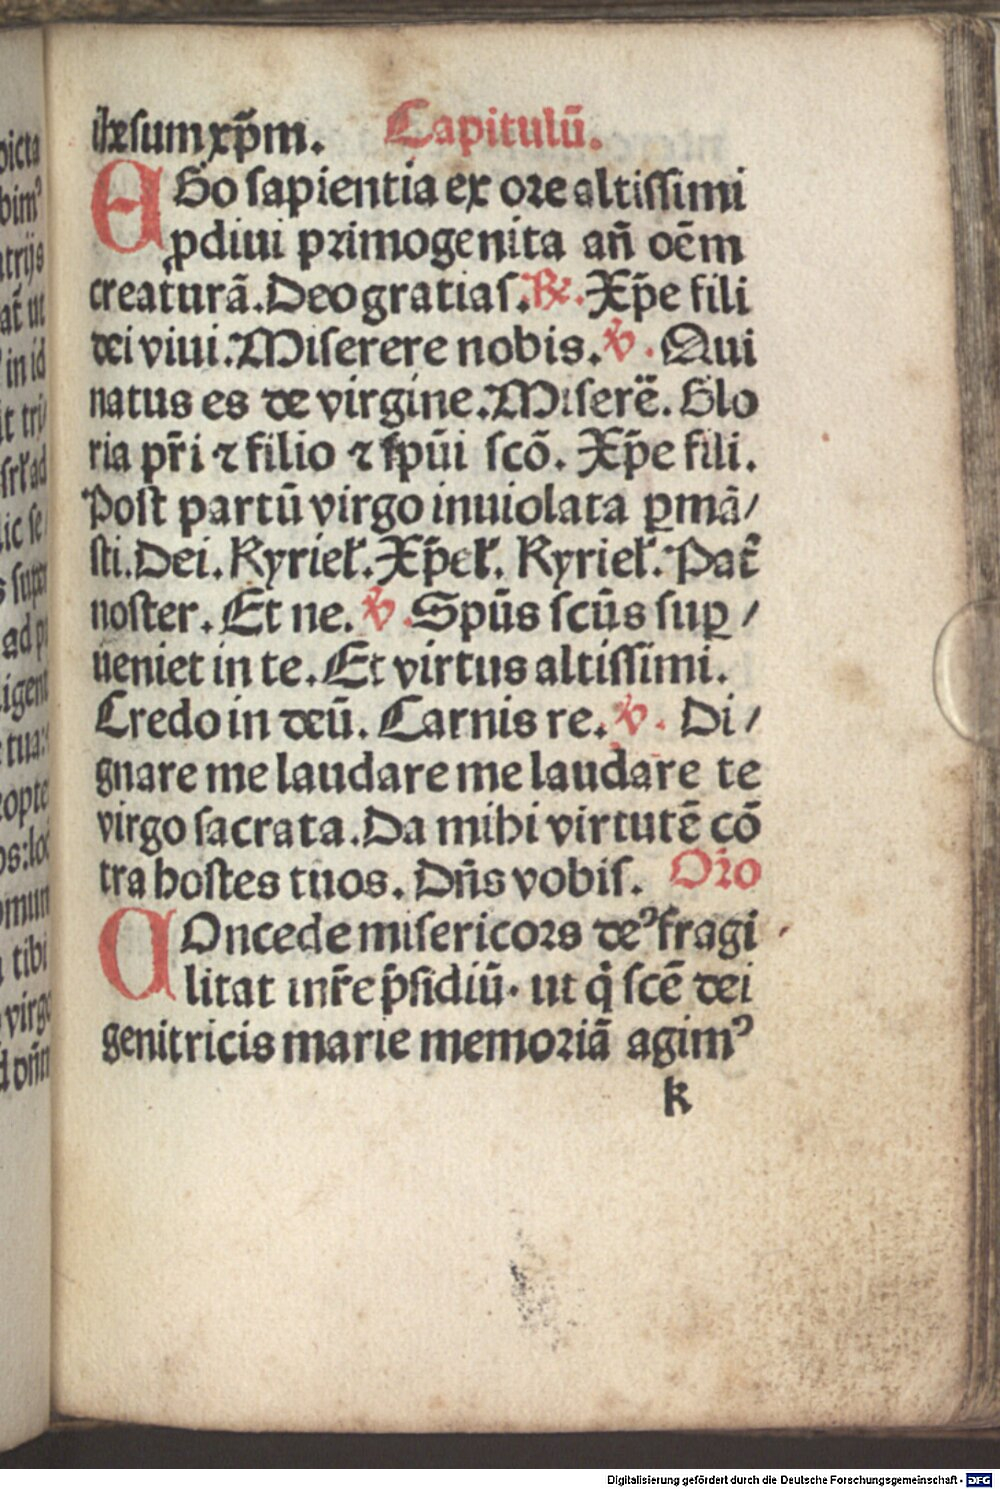 ihesum xp̄m. Capitulū.
EGo sapientia ex ore altissimi
ꝓdiui primogenita añ oēm
creaturā. Deo gratias. ℟. Xp̄e fili
dei viui. Miserere nobis. ℣. Qui
natus es de virgine. Miserē. Glo
ria pr̄i ⁊ filio ⁊ spūi scō. Xp̄e fili.
Post partū virgo inuiolata ꝑmā/
sti. Dei. Kyriel̓. Xp̄el̓. Kyriel̓. Pat̄
noster. Et ne. ℣. Spūs scūs suꝑ /
ueniet in te. Et virtus altissimi.
Credo in deū. Carnis re. ℣. Di/
gnare me laudare me laudare te
virgo sacrata. Da mihi virtutē cō
tra hostes tuos. Dn̄s vobis. Oro
COncede misericors deꝰ fragi
litat inr̄e p̄sidiū. ut q̇ scē dei
genitricis marie memoriā agimꝰ
k
dicta
bimꝰ
atrijs
at̄ ut
in id
it tri/
ad
lic se/
s super
ad
igent
tua:
tibi
virgo
Digitalisierung gefördert durch die Deutsche Forschungsgemeinschaft - DFG